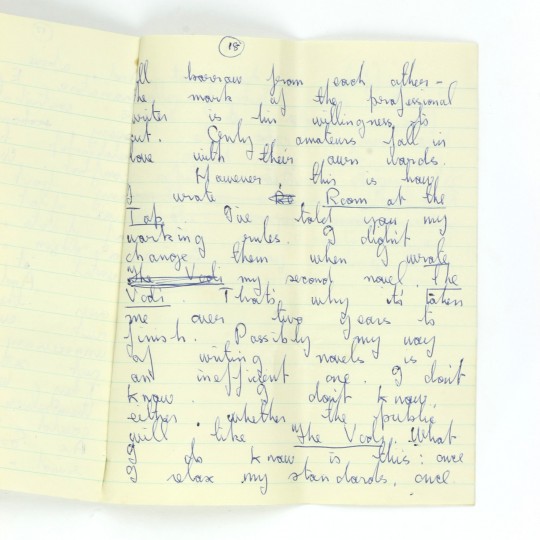 18
all borrow from each other –
the mark of the professional
writer is his willingness to
cut. Only amateurs fall in
love with their own words.
However, this is how
I wrote Room at the
Top. I've told you my
working rules. I didn't
change them when I wrote
The Vodi my second novel. The
Vodi. That's why it's taken
me over two years to
finish. Possibly my way
of writing novels is
an inefficient one. I don't
know. I don't know,
either, whether the public
will like The Vodi. What
I do know is this: once
I relax my standards, once